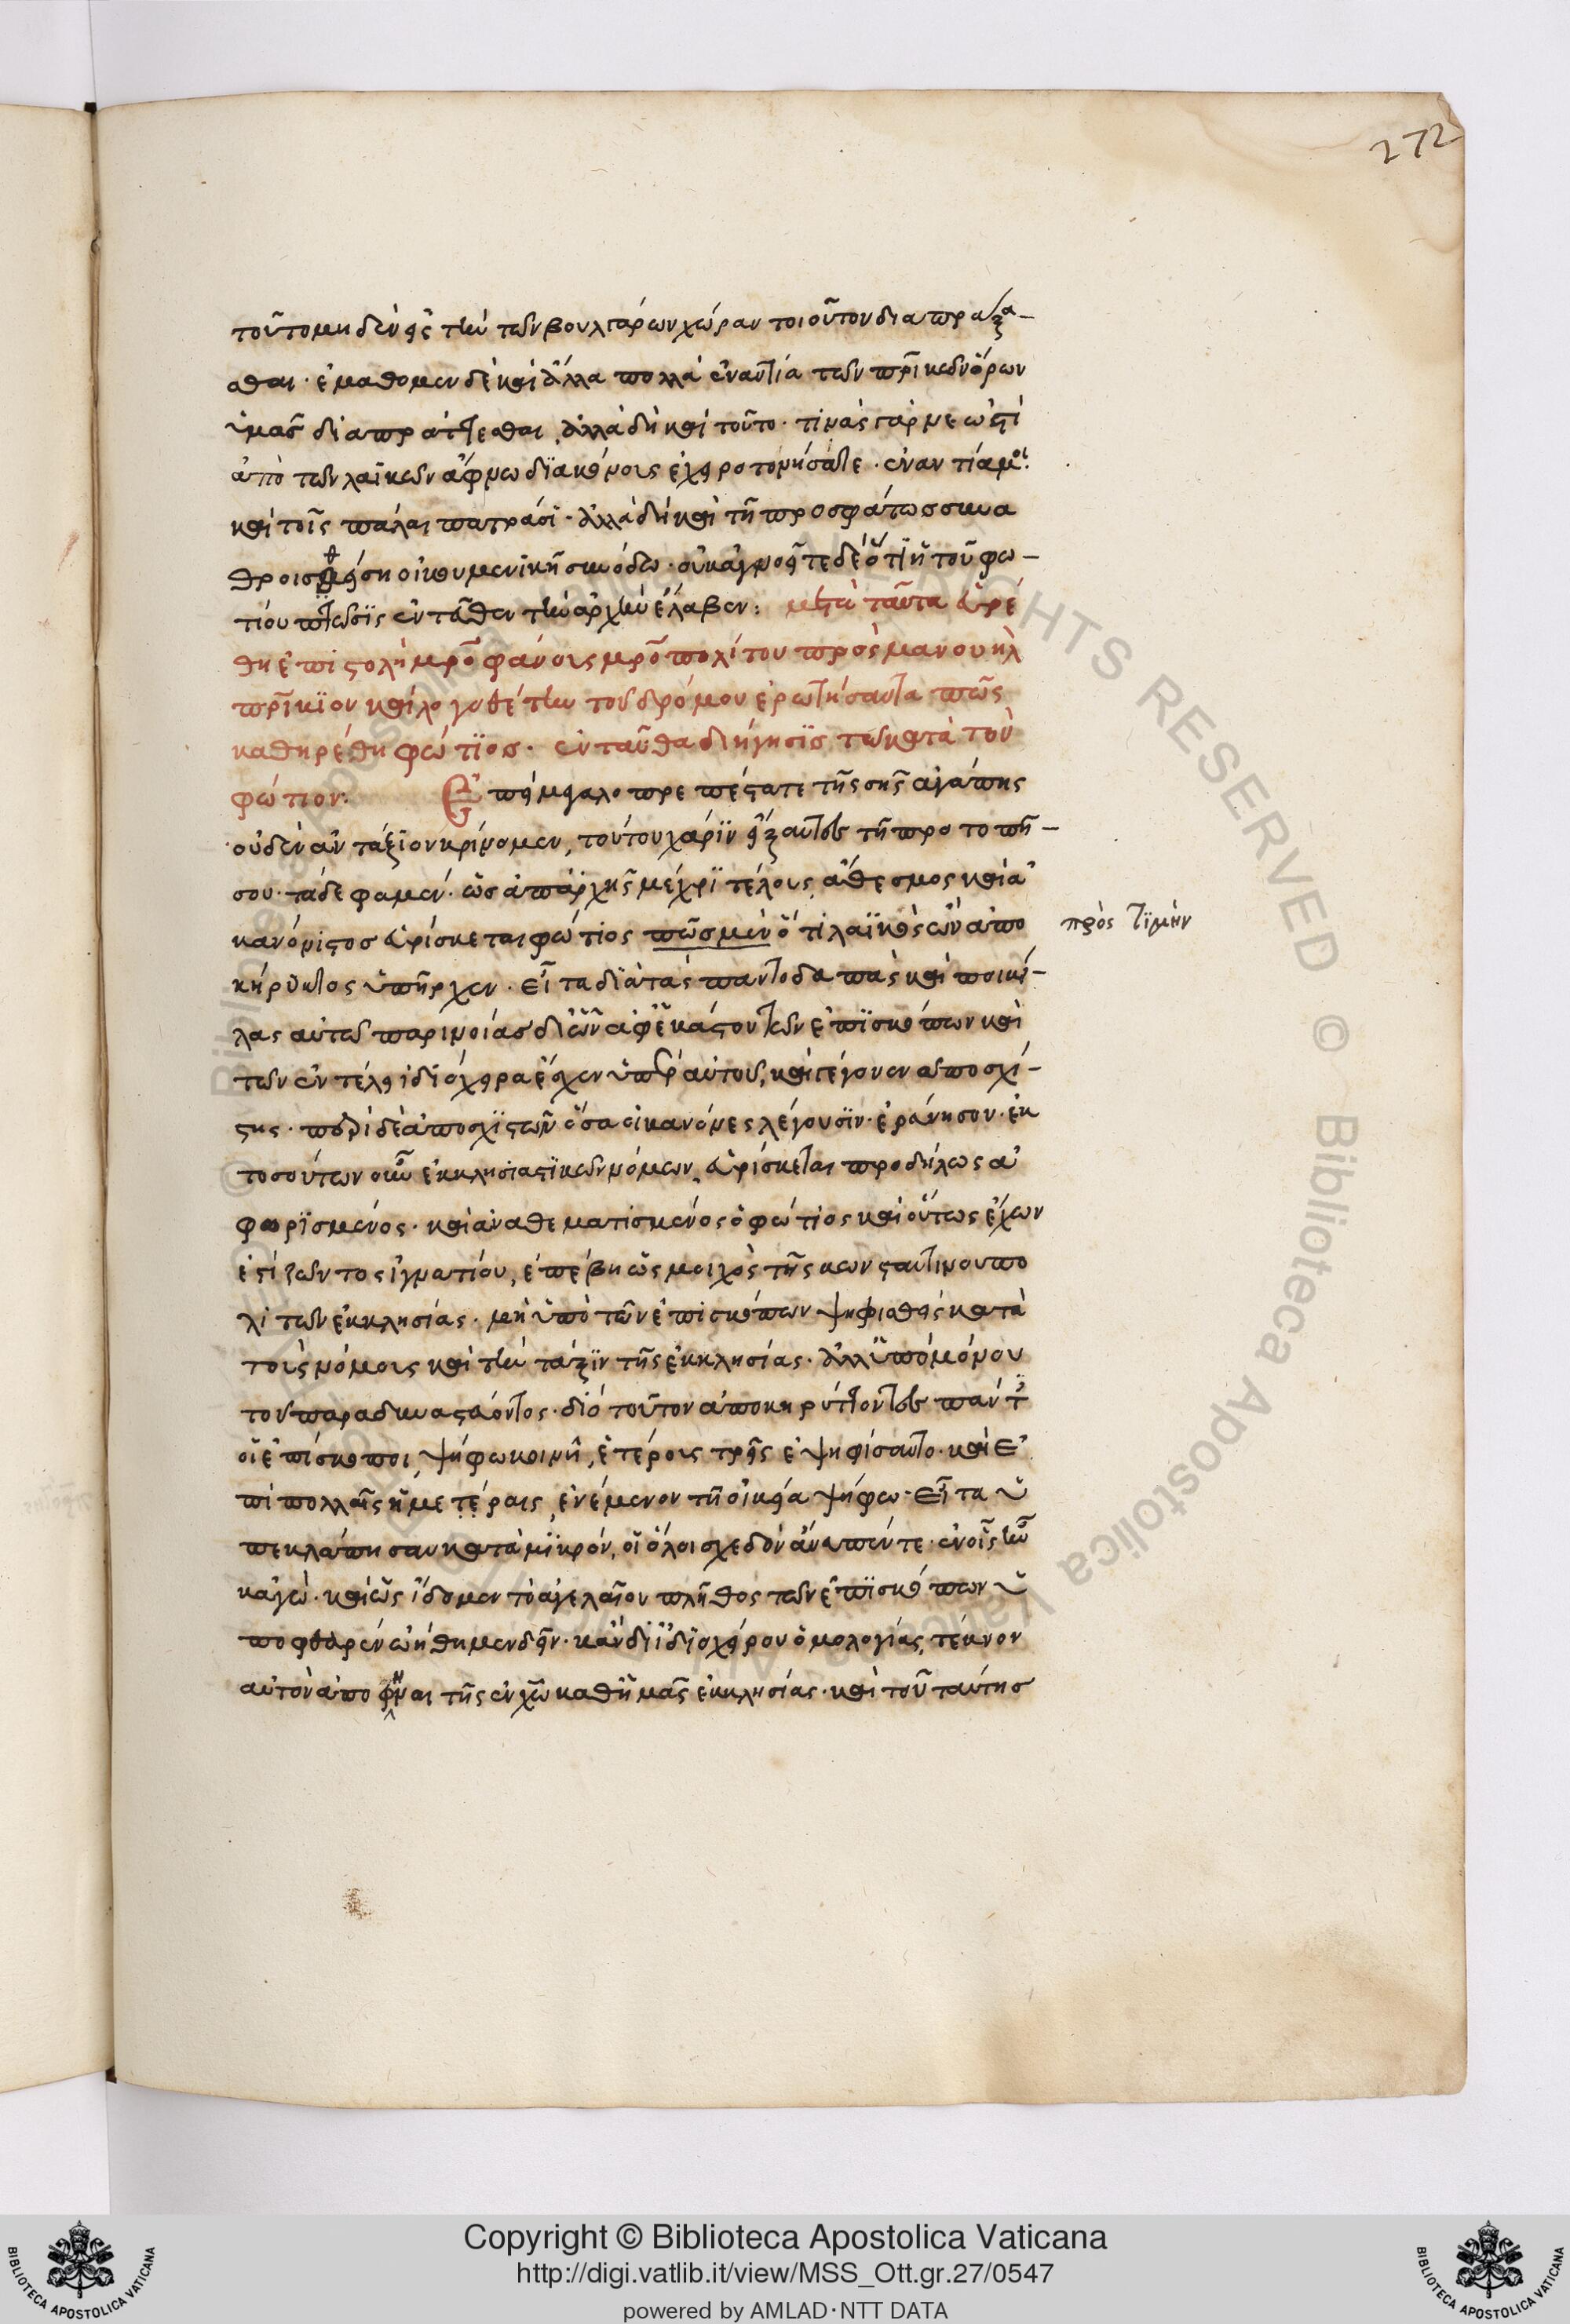 272
τοῦτο μηδὲν εἰς τὴν τῶν βουλγάρων χώραν τοιοῦτον διαπράξα-
σθαι· ἐμάθομεν δὲ καὶ ἄλλα πολλὰ ἐναντία τῶν πρικῶν ὅρων
ὑμᾶς διαπράττεσθαι, ἀλλὰ δὴ καὶ τοῦτο· τινὰς γὰρ
ἀπὸ τῶν λαϊκῶν ἄφνω διακόνους ἐχειροτονήσατε· ἐναντία
καὶ τοῖς πάλαι πατράσι· ἀλλὰ δὴ καὶ τῇ προσφάτως συνα
θροισθείση οἰκουμενικῆ συνόδω· οὐκ ἀγνοεῖτε δὲ ὅτι ἡ τοῦ φω-
τίου πτῶσις ἐντεῦθεν τὴν ἀρχὴν ἔλαβεν: μετὰ ταῦτα εὑρέ
θη ἐπιστολὴ μρο φάνους μροπολίτου πρὸς μανουὴλ
πρίκιον καὶ λογοθέτην τοῦ δρόμου ἐρωτήσαντα πῶς
καθηρέθη φώτιος· ἐνταῦθα διήγησις τῶν κατὰ τὸν
φώτιον· Ἐπεὶ μεγαλοπρεπέστατε τῆς σῆς ἀγάπης
οὐδὲν ἀντάξιον κρίνομεν, τούτου χάριν εἴξαντες τῇ προτοπῇ-
σου· τάδε φαμέν· ὡς ἀπαρχῆς μέχρι τέλους, ἄθεσμος καὶ ἀ
κανόνιστος εὑρίσκεται φώτιος πῶς μὲν ὅτι λαϊκὸς ὢν ἀπο πρὸς τιμὴν
κήρυκτος ὑπῆρχεν· εἶτα διὰ τὰς παντοδαπὰς καὶ ποικί-
λας αὐτῶ παρινοίας δι' ὧν ἀφ' ἑκάστου τῶν ἐπισκόπων καὶ
τῶν ἐν τέλει ἰδιόχειρα ἔσχεν ὑπὲρ αὐτοῦ, καὶ γέγονεν ἀποσχί-
στης· περὶ δὲ ἀποσχιστῶν ὅσα οἱ κανόνες λέγουσιν· ἐράνησον· ἐκ
τοσούτων οὖν ἐκκλησιαστικῶν νόμων, εὑρίσκεται προδήλως ἀ
φωρισμένος· καὶ ἀναθεματισμένος ὁ φώτιος καὶ οὕτως ἔχων
ἔτι ζῶντος ἰγνατίου, ἐπέβη ὡς μοιχὸς τῆς κωνσταντινουπο
λιτῶν ἐκκλησίας· μὴ ὑπὸ τῶν ἐπισκόπων ψηφισθεὶς κατὰ
τοὺς νόμους καὶ τὴν τάξιν τῆς ἐκκλησίας· ἀλλ' ὑπὸ μόνου
τοῦ παραδυναστεύοντος· διὸ τοῦτον ἀποκηρύττοντες πάντες
οἱ ἐπίσκοποι, ψήφω κοινῆ, ἑτέρους τρεῖς ἐψηφίσαντο· καὶ ἐ
πὶ πολλαῖς ἡμετέραις, ἐνέμενον τῇ οἰκεία ψήφω· εἶτα ὑ
πεκλάπησαν κατὰ μικρόν, οἱ ὅλοι σχεδὸν ἄνευ πέντε· ἐν οἷς ἦν
κἀγώ· καὶ ὡς ἴδομεν τὸ ἀγελαῖον πλῆθος τῶν ἐπισκόπων ὑ
ποφθαρὲν ὠήθημεν δεῖν· κἂν δι' ἰδιοχείρου ὁμολογίας, τέκνον
αὐτὸν ἀποφῆναι τῆς ἐν χω καθ' ἡμᾶς ἐκκλησίας· καὶ τοῦ ταύτης
Copyright © Biblioteca Apostolica Vaticana
http://digi.vatlib.it/view/MSS_Ott.gr.27/0547
powered by AMLAD·NTT DATA